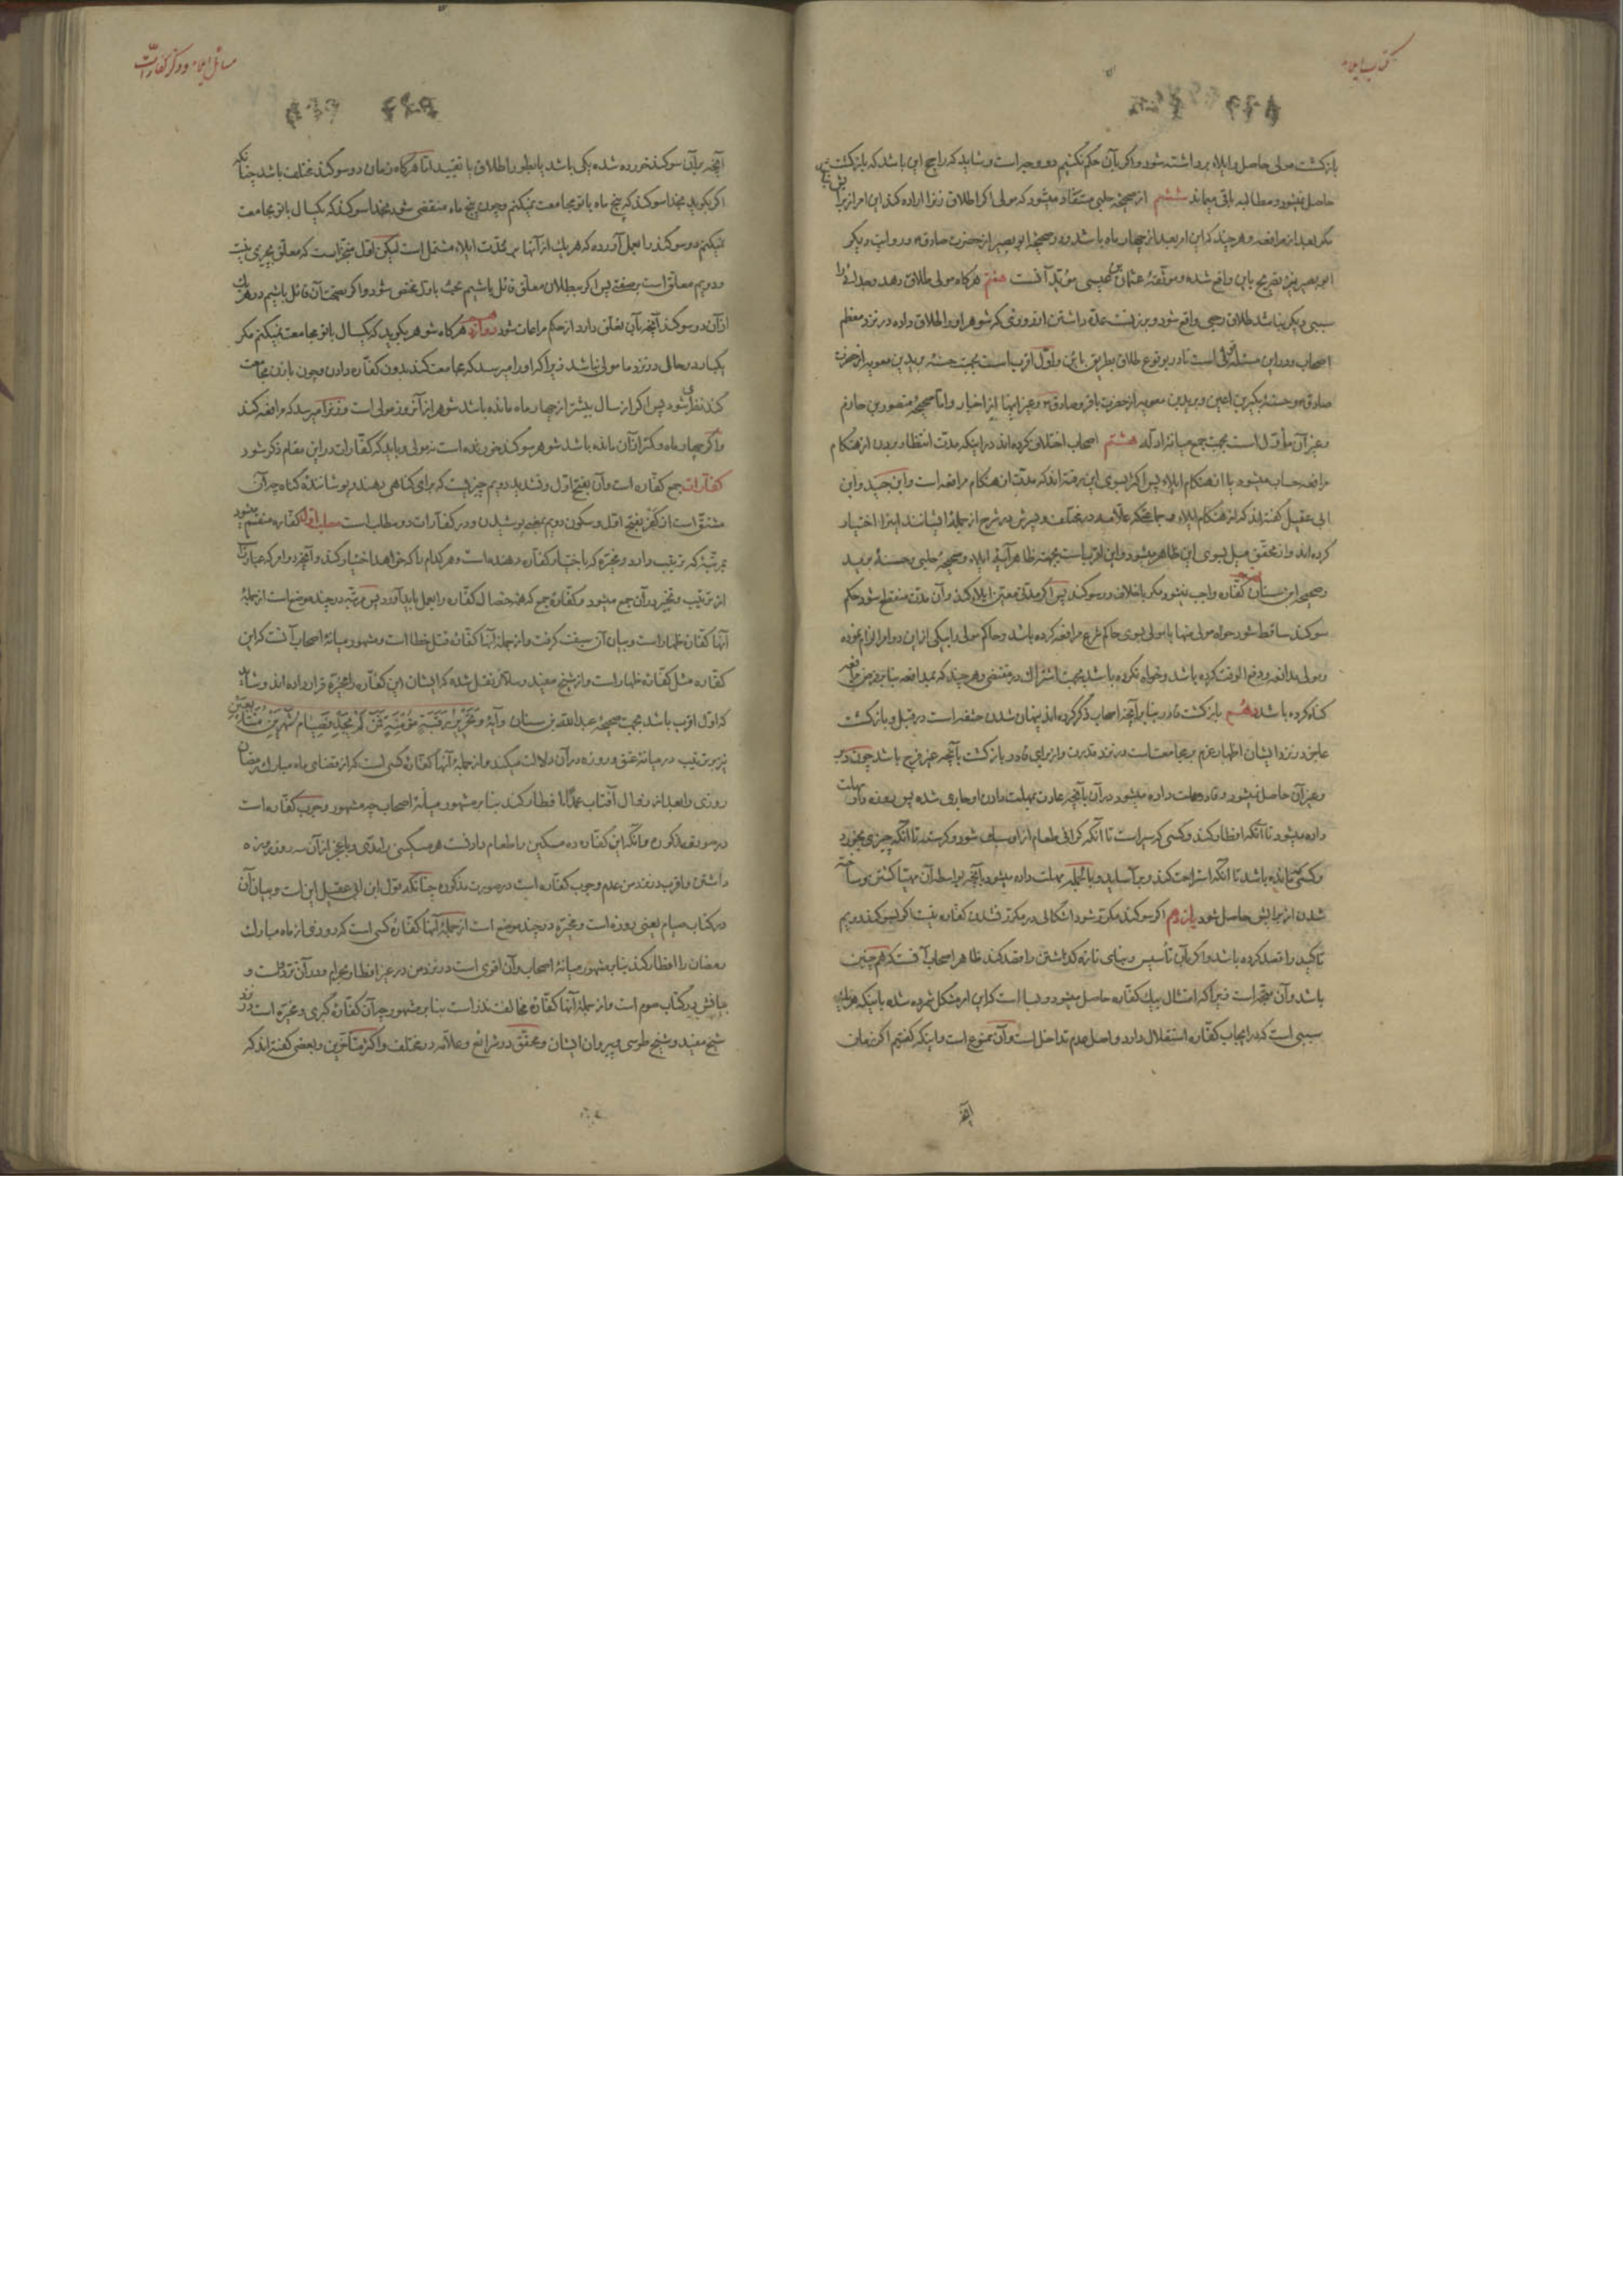 کتاب ایلاء
بازگشت مولی حاصل و ایلاء برداشته شود و اگر بآن حکم نکنیم دو وجه است و شاید که راجح این باشد که بازگشت
حاصل نمیشود و مطالبه باقی میماند ششم از صحیحه حلبی مستفاد میشود که مولی اگر اطلاق زنرا اراده کند این امر از برایش
مگر بعد از مرافعه و هر چند که این امر بعد از چهار ماه باشد و در صحیحه ابو بصیر از حضرت صادق و روایت دیگر
ابو بصیر نیز تصریح باین واقع شده و موثقه عثمان بن عیسی مؤید آنست هفتم هرگاه مولی طلاق دهد و بعد
سببی دیگر نباشد طلاق رجعی واقع شود و بر زنست عدّه داشتن از روزی که شوهر او را طلاق داده در نزد معظم
اصحاب و در این مسئله قولی است نادر بوقوع طلاق بطریق بائن و اوّل اقرب است بجهت حسنه برید بن معویه از حضرت
صادق و حسنه بکیر بن اعین و برید بن معویه از حضرت باقر و صادق و غیر اینها از اخبار و امّا صحیحه منصور بن حازم
و غیر آن مأوّل است بجهت جمع میانه ادله هشتم اصحاب اختلاف کرده اند در اینکه مدّت انتظار بردن از هنگام
مرافعه حساب میشود یا از هنگام ایلاء پس اکثر بسوی این رفته اند که مدّت از هنگام مرافعه است و ابن جنید و ابن
ابی عقیل گفته اند که از هنگام ایلاء و جماعتی که علامه در مختلف و پسرش در شرح از جمله ایشانند اینرا اختیار
کرده اند و از محقق میل بسوی این ظاهر میشود و این اقرب است بجهت ظاهر آیه ایلاء و صحیحه حلبی و حسنه برید
و صحیحه ابن سنان نهم کفّاره واجب نمیشود مگر با خلاف در سوگند پس اگر مدتی معین ایلاء کند و آن مدت منقطع شود حکم
سوگند ساقط شود خواه مولی منها با مولی بسوی حاکم شرع مرافعه کرده باشد و حاکم مولی را بیکی از این دو امر الزام نموده
و مولی مدافعه و دفع الوقت کرده باشد و خواه نکرده باشد بجهت اشتراک در مقتضی هر چند که بمدافعه بنا بر فرض مرافعه
گناه کرده باشد دهم بازگشت قادر بنا بر آنچه اصحاب ذکر کرده اند پنهان شدن حشفه است در قبل و بازگشت
عاجز در نزد ایشان اظهار عزم بر مجامعت است در نزد قدرت و از برای قادر بازگشت بآنچه غیر فرج باشد چون دبر
و غیر آن حاصل نمیشود و قادر مهلت داده میشود در آن بآنچه عادت بمهلت دادن او جاری شده پس روزه دار مهلت
داده میشود تا آنکه افطار کند و کسی که سیر است تا آنکه گرانی طعام از او سبک شود و گرسنه تا آنکه چیزی بخورد
و کسی که مانده باشد تا آنکه استراحت کند و بر آساید و بالجمله مهلت داده میشود بآنچه بواسطه آن مهیا گشتن و ساخته
شدن از برایش حاصل شود یازدهم اگر سوگند مکرّر شود اشکالی در مکرّر نشدن کفّاره نیست اگر بسوگند دویم
تاکید را قصد کرده باشد و اگر بآن تأسیس و بنای تازه گذاشتن را قصد کند ظاهر اصحاب آنست که هم چنین
باشد و آن متجه است زیرا که امتثال بیک کفّاره حاصل میشود و بسا است که این امر مشکل شمرده شده باینکه هر یک
سببی است که در ایجاب کفّاره استقلال دارد و اصل عدم تداخل است و آن ممنوع است و اینکه گفتیم اگر زمان
آنچه
مسائل ایلاء و ذکر کفارات
آنچه بر آن سوگند خورده شده یکی باشد یا بطور اطلاق یا تقیید امّا هرگاه زمان دو سوگند مختلف باشد چنانکه
اگر بگوید بخدا سوگند که پنج ماه با تو مجامعت نمیکنم و چون پنج ماه منقضی شود بخدا سوگند که یکسال با تو مجامعت
نمیکنم دو سوگند را بعمل آورده که هر یک از آنها بر مدّت ایلاء مشتمل است لیکن اوّل منجّز است که معلّق بچیزی نیست
و دویم معلّق است بر صفتی پس اگر ببطلان معلّق قائل باشیم بحث باوّل مختص شود و اگر بصحت آن قائل باشیم در هر یک
از آن دو سوگند آنچه بآن تعلّق دارد از حکم مراعات شود دوازدهم هرگاه شوهر بگوید که یکسال با تو مجامعت نمیکنم مگر
یکبار در حال در نزد ما مولی نباشد زیرا که او را میرسد که مجامعت کند بدون کفّاره دادن و چون با زن مجامعت
کند نظر شود پس اگر از سال بیشتر از چهار ماه مانده باشد شوهر از آنروز مولی است و زنرا میرسد که مرافعه کند
و اگر چهار ماه و کمتر از آن مانده باشد شوهر سوگند خورنده است نه مولی و باید که کفّارات در این مقام ذکر شود
کفّارات جمع کفّاره است و آن بفتح اوّل و تشدید دویم چیزیست که برای گناهی دهند و پوشانندهٔ گناه چه آن
مشتق است از کفر بفتح اوّل و سکون دویم بمعنی پوشیدن و در کفّارات دو مطلب است مطلب اول کفّاره منقسم میشود
بمرتبه که ترتیب دارد و مخیّره که باختیار کفّاره دهنده است و هر کدام را که خواهد اختیار کند و آنچه دو امر که عبارت
از ترتیب و تخییر در آن جمع میشود و کفّارهٔ جمع که همه خصال کفّاره را بعمل باید آورد پس مرتبه در چند موضع است از جملهٔ
آنها کفّارهٔ ظهار است و بیان آن سبقت گرفت و از جملهٔ آنها کفّارهٔ قتل خطا است و مشهور میانهٔ اصحاب آنست که این
کفّاره مثل کفّارهٔ ظهار است و از شیخ مفید و سلّار نقل شده که ایشان این کفّاره را مخیّره قرار داده اند و شاید
که اوّل اقرب باشد بجهت صحیحهٔ عبدالله بن سنان و آیهٔ و تحریر رقبة مؤمنة فمن لم یجد فصیام شهرین متتابعین
نیز بر ترتیب در میانهٔ عتق و روزه در آن دلالت میکند و از جملهٔ آنها کفّارهٔ کسی است که از قضای ماه مبارک رمضان
روزی را بعد از زوال آفتاب عمداً افطار کند بنا بر مشهور میانهٔ اصحاب چه مشهور وجوب کفّاره است
در صورت مذکوره و آنکه این کفّاره ده مسکین را طعام دادنست هر مسکینی را مدّی و با عجز از آن سه روز روزه
داشتن و اقرب در نزد من عدم وجوب کفّاره است در صورت مذکوره چنانکه قول ابن ابی عقیل این است و بیان آن
در کتاب صیام یعنی روزه است و مخیّره در چند موضع است از جملهٔ آنها کفّارهٔ کسی است که روزی از ماه مبارک
رمضان را افطار کند بنا بر مشهور میانهٔ اصحاب و آن اقوی است در نزد من در غیر افطار بحرام و در آن تردّد است و
بیانش در کتاب صوم است و از جملهٔ آنها کفّارهٔ مخالفت نذر است بنا بر مشهور چه آن کفّارهٔ کبری و مخیّره است در نزد
شیخ مفید و شیخ طوسی و پیروان ایشان و محقّق در شرائع و علّامه در مختلف و اکثر متأخّرین و بعضی گفته اند که